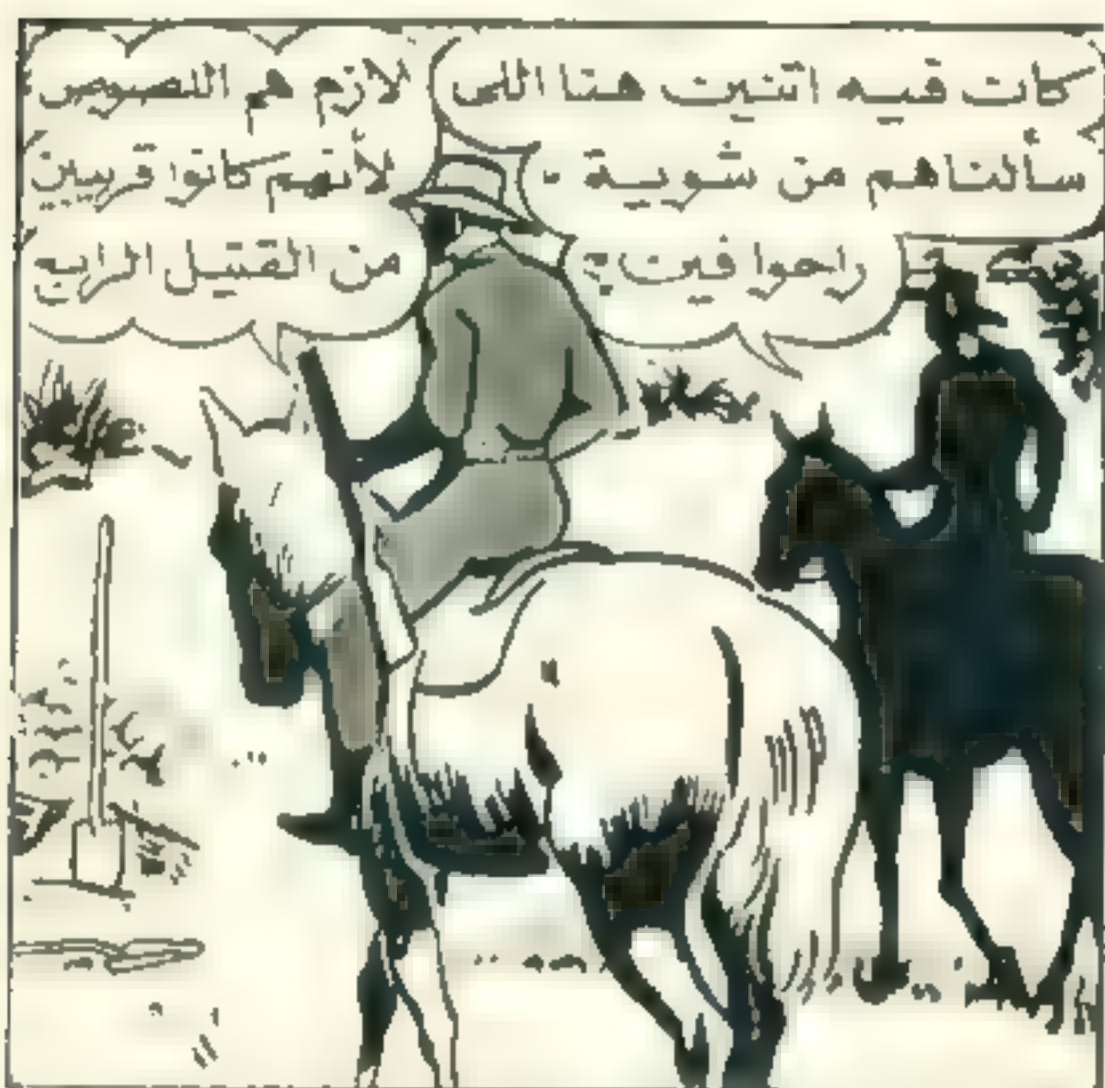 كان فيه اتنين هنا اللى
سألناهم من شوية .
راحوا فين ؟
لازم هم اللصوص
لأنهم كانوا قريبين
من القتيل الرابع